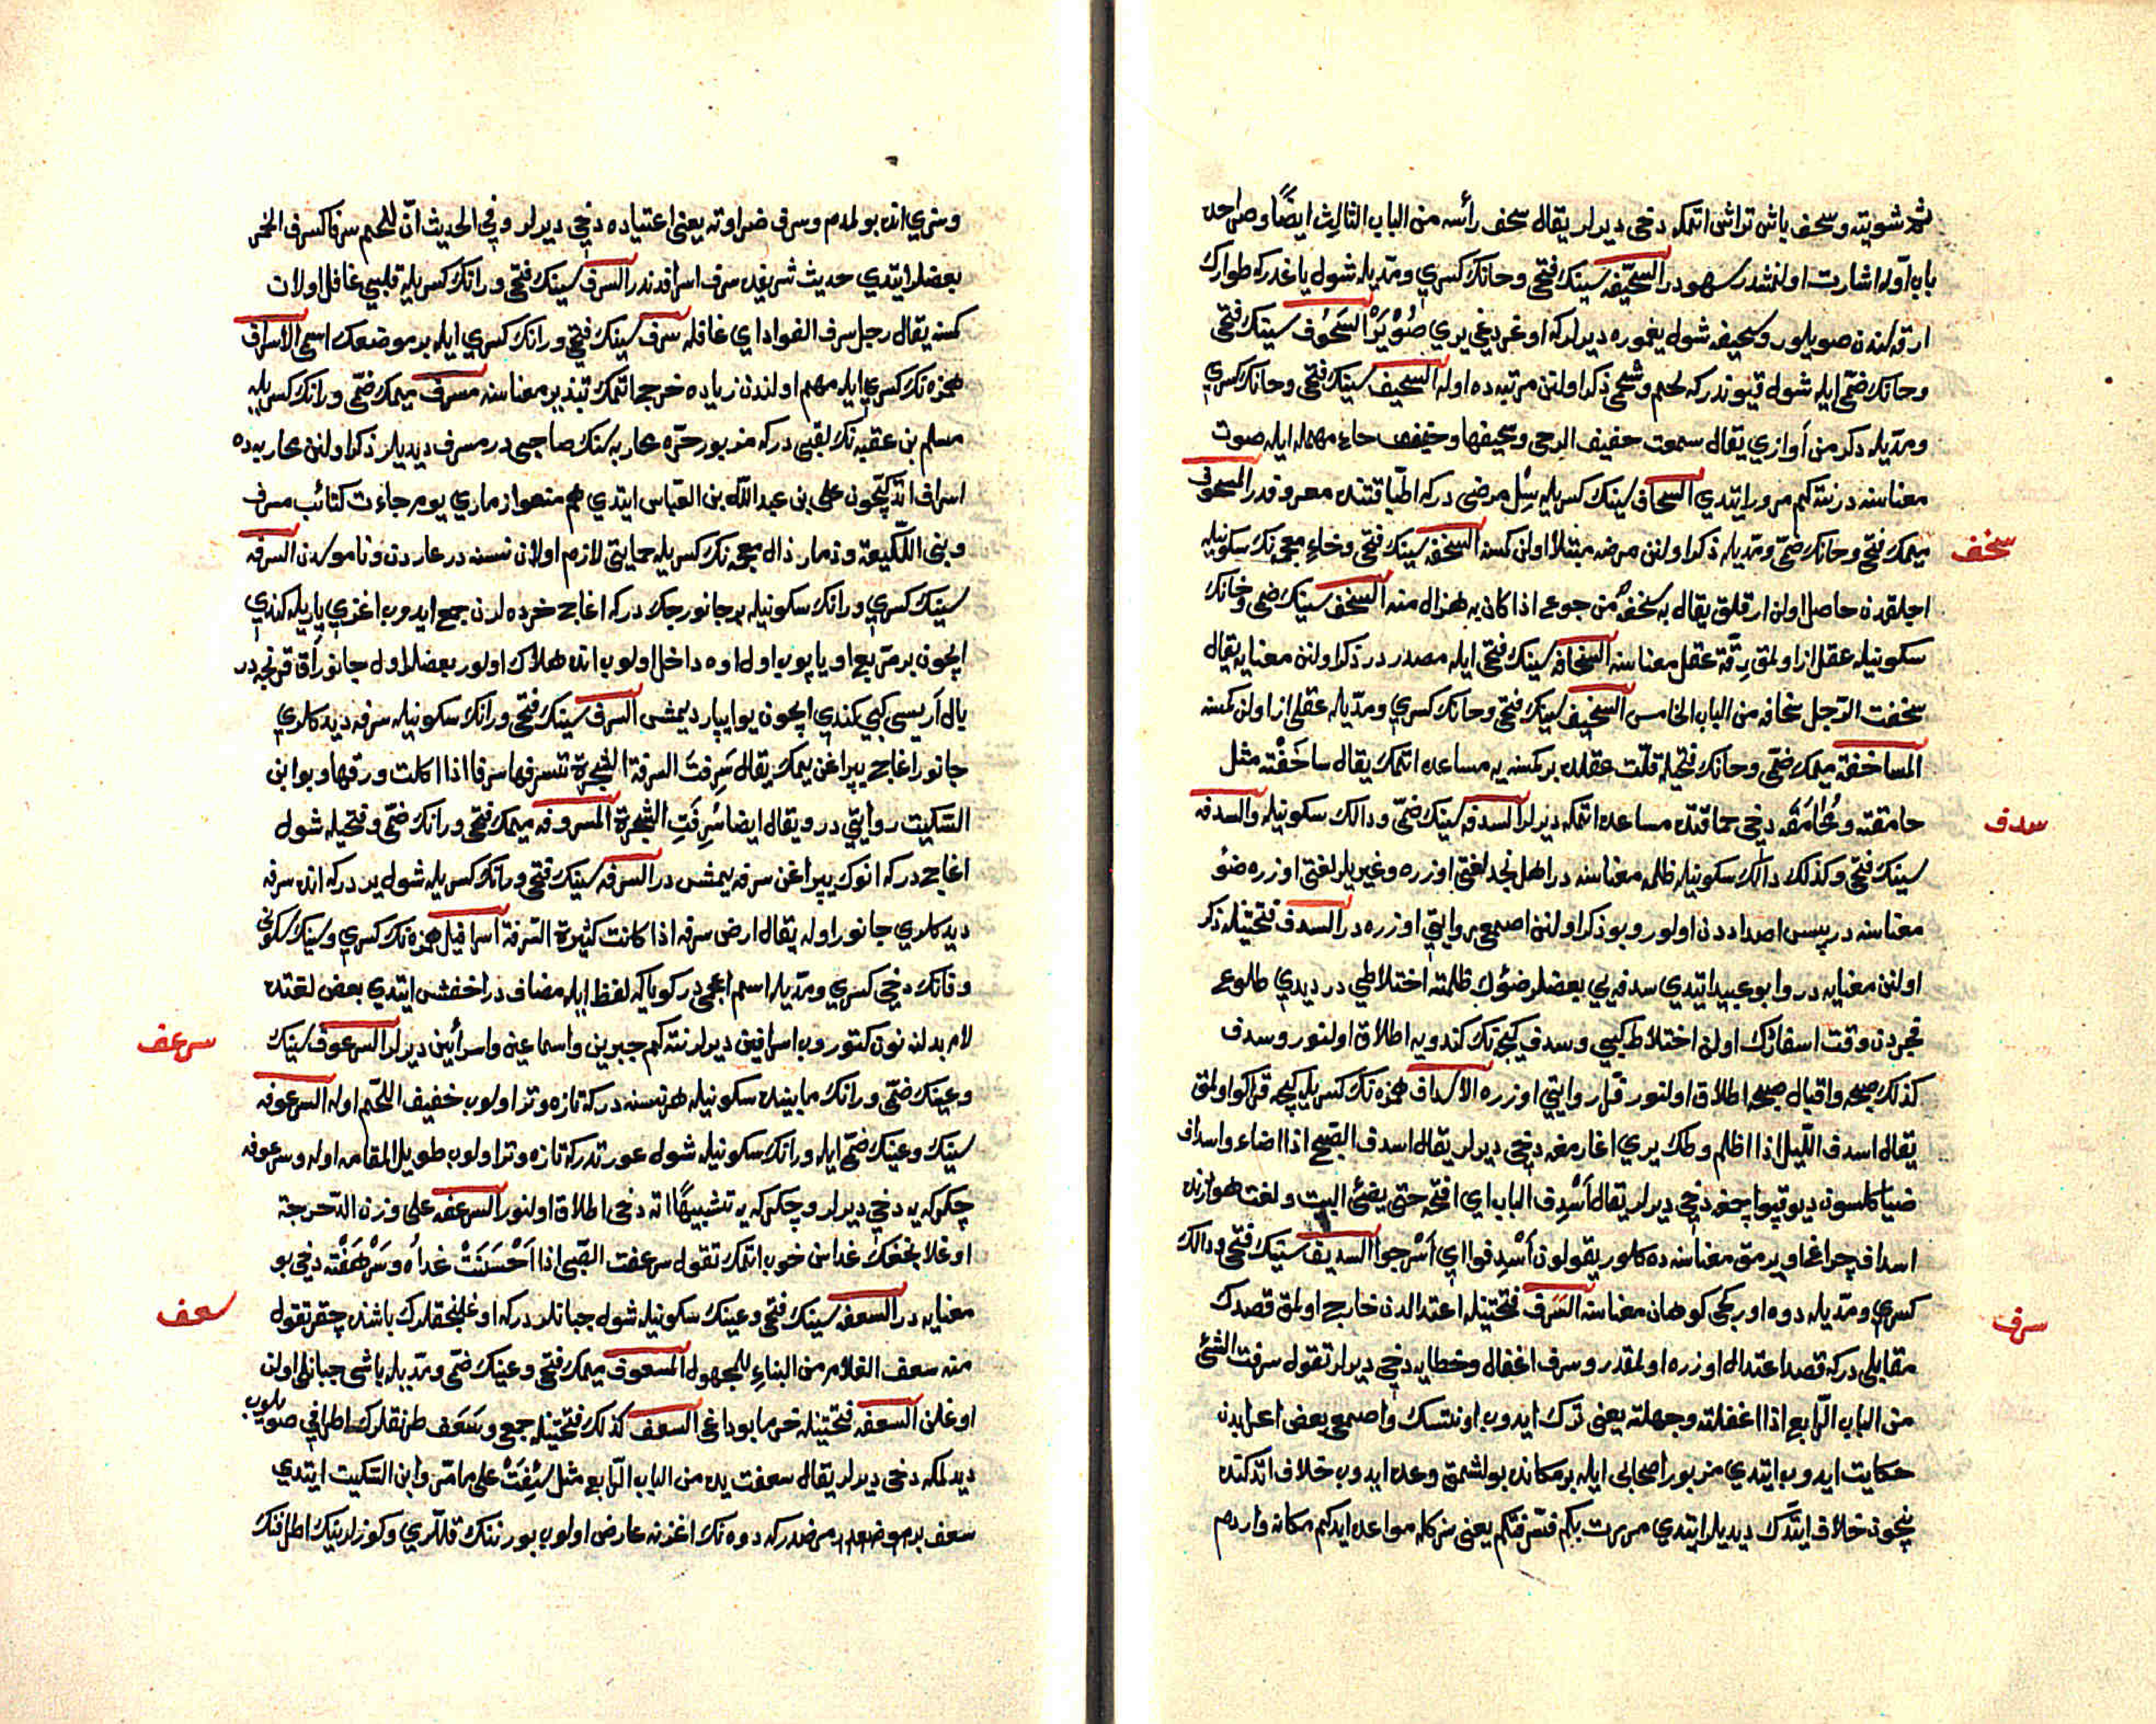 ثم شويته وسحف باش تراش اتمكه دخى ديرلر يقال سحف رأسه من الباب الثالث ايضًا وصراحده
باب اوله اشارت اولنمشدر سهودر السحيفه سينك فتحى وحانك كسرى ومديله شول ياغدركه طوارك
ارقه لندن صويلور وسحيفه شول يغموره ديرلركه اوغردغى يرى صُوْيَرْ السَحُوف سينك فتحى
وحانك ضمّى ايله شول قيوندركه لحم وشحمى ذكر اولنن مرتبه ده اوله السحيف سينك فتحى وحانك كسرى
ومديله دكرمن آوازى يقال سمعت حفيف الرحى وسحيفها وحفيف حاء مهمله ايله صوت
معناسنه درنته كم مرور ايتدى السحاف سينك كسريله سِلّ مرضى دركه اطبّا قتنده معروفدر المسحوف
ميمك فتحى وحانك ضمّى ومديله ذكر اولنن مرضه مبتلا اولن كمسنه السخفه سينك فتحى وخاء معجمه نك سكونيله
سخف
اجلقدن حاصل اولن ارقلق يقال به سخفةٌ من جوع اذا كان به هزال منه السخف سينك ضمى وخانك
سكونيله عقل از اولمق رقّة عقل معناسنه السخافه سينك فتحى ايله مصدر در ذكر اولنن معنايه يقال
سخفت الرّجل سخافة من الباب الخامس السخيف سينك فتحى وحانك كسرى ومدّيله عقلى از اولن كمسنه
المساخفة ميمك ضمّى وحانك فتحيله قلّت عقلده بر كمسنه يه مساعده اتمك يقال ساخَفْته مثل
حامقته ومُحَامَقَه دخى حماقتده مساعده اتمكه ديرلر السدفه سينك ضمّى ودالك سكونيله والسدفه
سدف
سينك فتحى وكذلك دالك سكونيله ظلمه معناسنه در اهل نجد لغتى اوزره وغيريلر لغتى اوزره ضوٴ
معناسنه در پس اضداددن اولور وبو ذكر اولنن اصمعى روايتى اوزره در السدف فتحتينله ذكر
اولنن معنايه در وابو عبيد ايتدى سدفه يى بعضلر ضوٴك ظلمته اختلاطى در ديدى طلوع
فجردن وقت اسفارك اولن اختلاط كبى وسدف كيجه نك كندويه اطلاق اولنور وسدف
كذلك صبحه واقبال صبحه اطلاق اولنور فرّا روايتى اوزره الاسداف همزه نك كسريله كيجه قراكو اولمق
يقال اسدف اللّيل اذا اظلم وطك يرى اغارمغه دخى ديرلر يقال اسدف الصّبح اذا اضاء واسداف
ضيا كلسون ديو قپو اچمغه دخى ديرلر يقال أَسْدِف الباب اى افتحه حتى يضئ البيت ولغت هوازنده
اسداف چراغ اويرمق معناسنه ده كلور يقولون أَسْدِفوا اى أَسْرجوا السديف سينك فتحى ودالك
كسرى ومدّيله دوه اوركجى كوهان معناسنه السَرَف فتحتينله اعتدالدن خارج اولمق قصدك
سرف
مقابلى دركه قصد اعتدال اوزره اولمقدر وسرف اغفال وخطايه دخى ديرلر تقول سرفت الشئ
من الباب الرّابع اذا اغفلته وجهلته يعنى ترك ايدوب اونتسك واصمعى بعض اعرابيدن
حكايت ايدوب ايتدى مزبور اصحابى ايله بر مكانده بولشمق وعده ايدوب خلاف اتدكنده
نيچون خلاف ايتدك ديديلر ايتدى مررت بكم فسرفتكم يعنى سزكله مواعده ايدكم مكانه واردم
وسزى انده بولمدم وسرف ضراوته يعنى اعتياده دخى ديرلر وفى الحديث انّ للّحم سرفا كسرف الخمر
بعضلر ايتدى حديث شريفده سرف اسرافدندر السرف سينك فتحى ورانك كسريله قلبى غافل اولان
كمسنه يقال رجل سرف الفواد اى غافله سرف سينك فتحى ورانك كسرى ايله بر موضعك اسمى الاسراف
همزه نك كسرى ايله مهم اولندن زياده خرج اتمك تبذير معناسنه مسرف ميمك ضمّى ورانك كسريله
مسلم بن عقبه نك لقبى دركه مزبور حرّه محاربه سنك صاحبى در مسرف ديديلر ذكر اولنن محاربه ده
اسراف اتدكيچون على بن عبد اللّه بن العباس ايتدى هم منعوا ذمارى يوم جاءت كتائب مسرف
وبنى اللّكيعة وذمار ذال معجمه نك كسريله حمايتى لازم اولان نسنه در عاردن وناموسدن السرفه
سينك كسرى ورانك سكونيله بر جانورجك دركه اغاج خرده لرن جمع ايدوب اغزى ياريله كندى
ايچون بر مربع او ياپوب اول اوه داخل اولوب انده هلاك اولور بعضلر اول جانور آق قرنجه در
بال آريسى كبى كندى ايچون يوا ياپار ديمش السرف سينك فتحى ورانك سكونيله سرفه ديدكلرى
جانور اغاج يپراغن يمك يقال سَرِفتَ السرفة الشجرة تسرفها سرفا اذا اكلت ورقها وبو ابن
السّكيت روايتى در ويقال ايضا سُرِفَتِ الشّجرة المسروفه ميمك فتحى ورانك ضمّى وفتحيله شول
اغاج دركه انوك يپراغن سرفه يمش در السرفه سينك فتحى ورانك كسريله شول يردركه انده سرفه
ديدكلرى جانور اوله يقال ارض سرفه اذا كانت كثيرة السّرفة اسرافيل همزه نك كسرى وسينك سكونى
وفانك دخى كسرى ومدّيله اسم اعجمى در كويا كه لفظ ايله مضاف در اخفش ايتدى بعض لغتده
لام بدلنه نون كتوروب اسرافين ديرلر نته كم جبرين واسماعين واسرأيين ديرلر السرعوف سينك
سرعف
وعينك ضمّى ورانك مابينده سكونيله هر نسنه دركه تازه وتر اولوب خفيف اللّحم اوله السرعوفه
سينك وعينك ضمّى ايله ورانك سكونيله شول عورتدركه تازه وتر اولوب طويل المقامه اوله وسرعوفه
چكركه يه دخى ديرلر وچكركه يه تشبيهًا اته دخى اطلاق اولنور السرعفه على وزن الدّحرجة
اوغلانجغك غداسن خوب اتمك تقول سرعفت الصّبى اذا أَحْسَنْتَ غداَه وسَرْهَفْته دخى بو
معنايه در السعفه سينك فتحى وعينك سكونيله شول جبانلر دركه اوغلنجقلرك باشنده چقر تقول
سعف
منه سعف الغلام من البناءِ للمجهول المسعوف ميمك فتحى وعينك ضمّى ومدّيله باشى جبانلى اولن
اوغلن السعفه فتحتينله خرما بوداغى السعف كذلك فتحتينله جمعى وسَعَف طرنقلرك اطرافى صويلوب
ديدلمكه دخى ديرلر يقال سعفت يده من الباب الرّابع مثل سَئِفَتْ على ما مرّ وابن السّكيت ايتدى
سعف بر مرضدركه دوه نك اغزنه عارض اولوب بورننك قللّرى وكوزلرينك اطرافنك